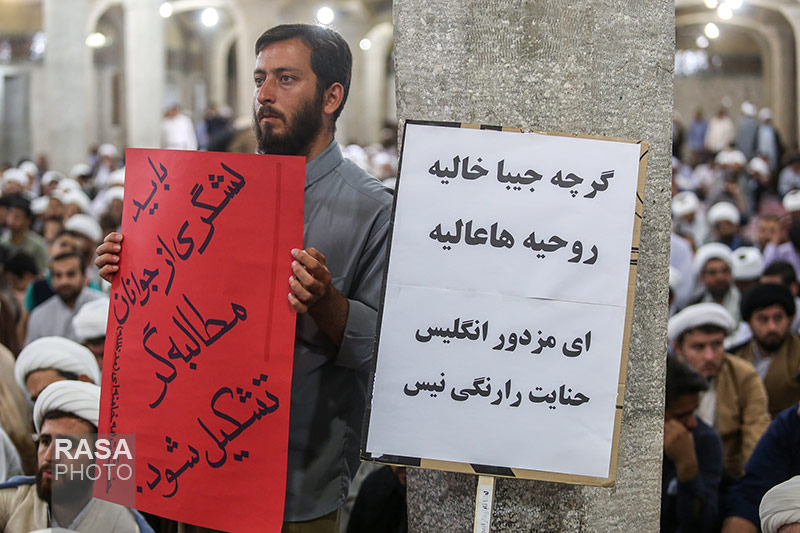 باید
لشگری از جوانان
مطالبه‌گر
تشکیل شود.
گرچه جیبا خالیه
روحیه هاعالیه
ای مزدور انگلیس
حنایت رارنگی نیس
RASA
PHOTO